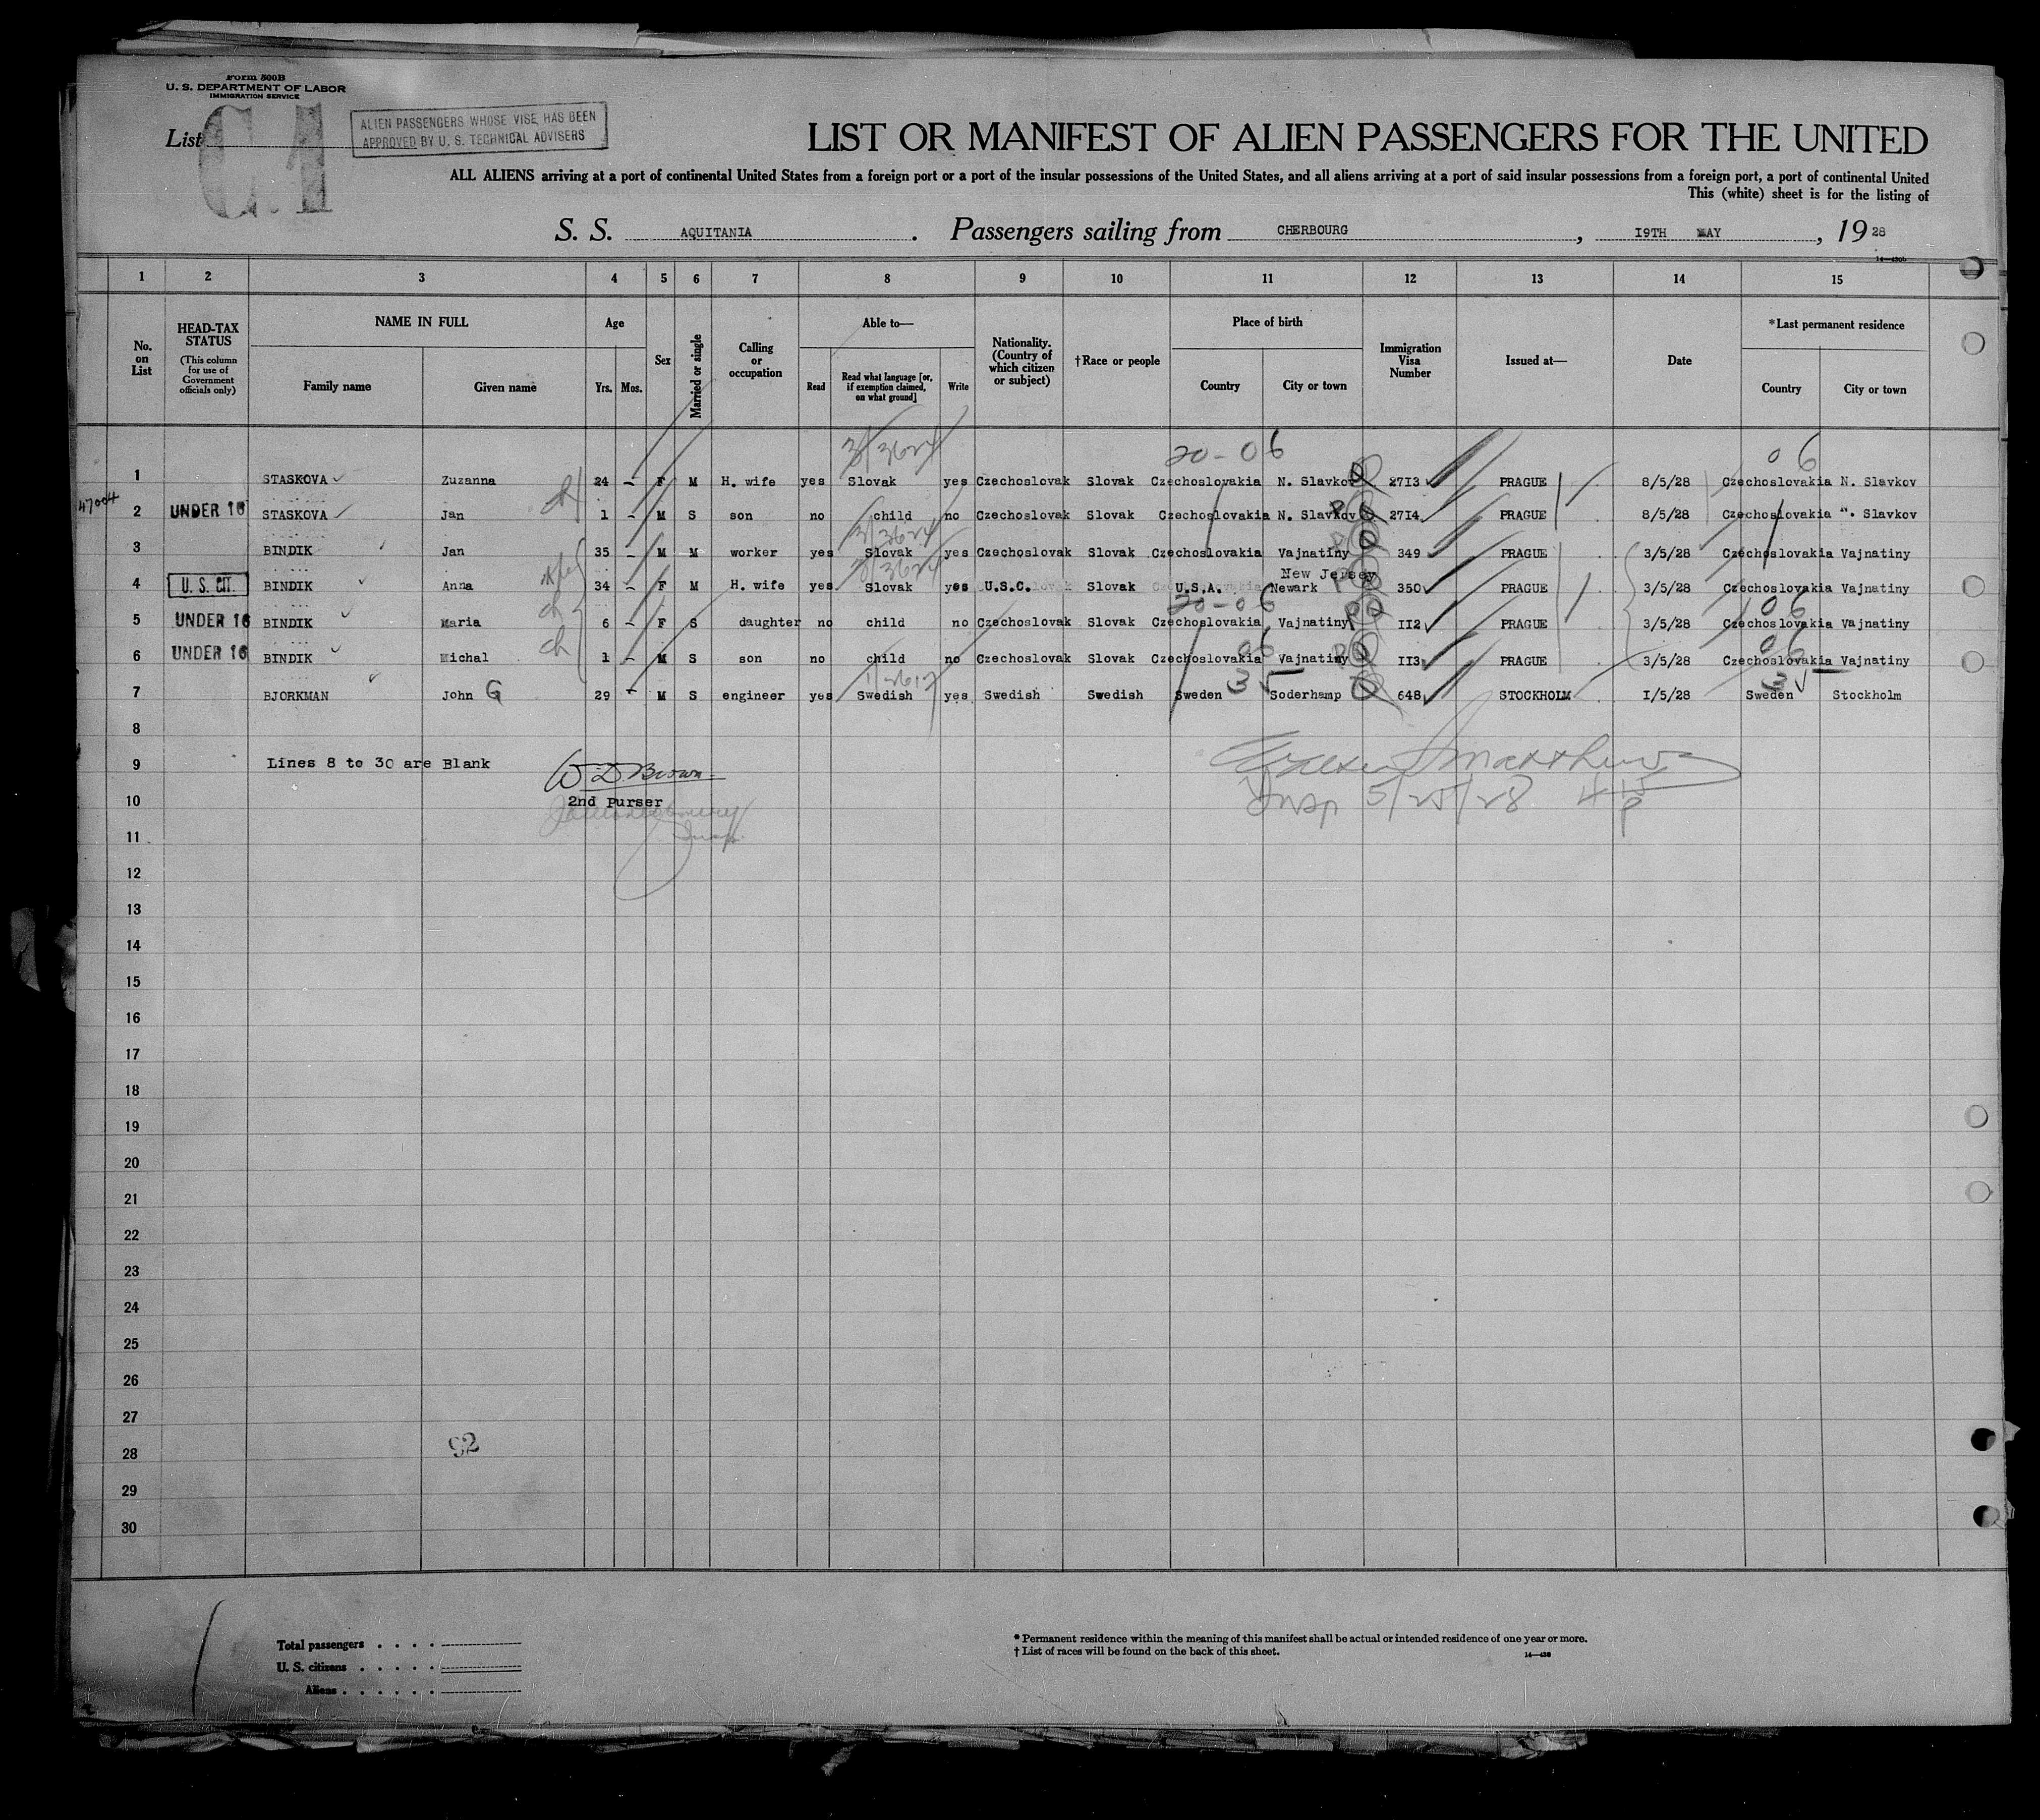 Form 500B
U. S. DEPARTMENT OF LABOR
IMMIGRATION SERVICE
List C.1
ALIEN PASSENGERS WHOSE VISE HAS BEEN
APPROVED BY U. S. TECHNICAL ADVISERS
LIST OR MANIFEST OF ALIEN PASSENGERS FOR THE UNITED
ALL ALIENS arriving at a port of continental United States from a foreign port or a port of the insular possessions of the United States, and all aliens arriving at a port of said insular possessions from a foreign port, a port of continental United
This (white) sheet is for the listing of
S. S. AQUITANIA. Passengers sailing from CHERBOURG, I9TH MAY, 1928
1 2 3 4 5 6 7 8 9 10 11 12 13 14 15
No. on List
HEAD-TAX STATUS (This column for use of Government officials only)
NAME IN FULL Family name Given name
Age Yrs. Mos.
Sex
Married or single
Calling or occupation
Able to— Read Read what language [or, if exemption claimed, on what ground] Write
Nationality. (Country of which citizen or subject)
†Race or people
Place of birth Country City or town
Immigration Visa Number
Issued at—
Date
*Last permanent residence Country City or town
3/3624 20-06 06
1 STASKOVA Zuzanna 24 – F M H. wife yes Slovak yes Czechoslovak Slovak Czechoslovakia N. Slavkov 27I3 PRAGUE 8/5/28 Czechoslovakia N. Slavkov
47004
2 UNDER 16 STASKOVA Jan 1 – M S son no child no Czechoslovak Slovak Czechoslovakia N. Slavkov 27I4 PRAGUE 8/5/28 Czechoslovakia N. Slavkov
3/3624
3 BINDIK Jan 35 – M M worker yes Slovak yes Czechoslovak Slovak Czechoslovakia Vajnatiny 349 PRAGUE 3/5/28 Czechoslovakia Vajnatiny
3/3624 New Jersey
4 U. S. CIT. BINDIK Anna 34 – F M H. wife yes Slovak yes U.S.C. Slovak U.S.A. Newark 350 PRAGUE 3/5/28 Czechoslovakia Vajnatiny
20-06 06
5 UNDER 16 BINDIK Maria 6 – F S daughter no child no Czechoslovak Slovak Czechoslovakia Vajnatiny II2 PRAGUE 3/5/28 Czechoslovakia Vajnatiny
06 06
6 UNDER 16 BINDIK Michal 1 – M S son no child no Czechoslovak Slovak Czechoslovakia Vajnatiny II3 PRAGUE 3/5/28 Czechoslovakia Vajnatiny
35 35
7 BJORKMAN John G 29 – M S engineer yes Swedish yes Swedish Swedish Sweden Soderhamp 648 STOCKHOLM I/5/28 Sweden Stockholm
8
9 Lines 8 to 30 are Blank W D Brown
10 2nd Purser Insp 5/25/28
11
12
13
14
15
16
17
18
19
20
21
22
23
24
25
26
27
28 92
29
30
Total passengers
U. S. citizens
Aliens
* Permanent residence within the meaning of this manifest shall be actual or intended residence of one year or more.
† List of races will be found on the back of this sheet.
14—430